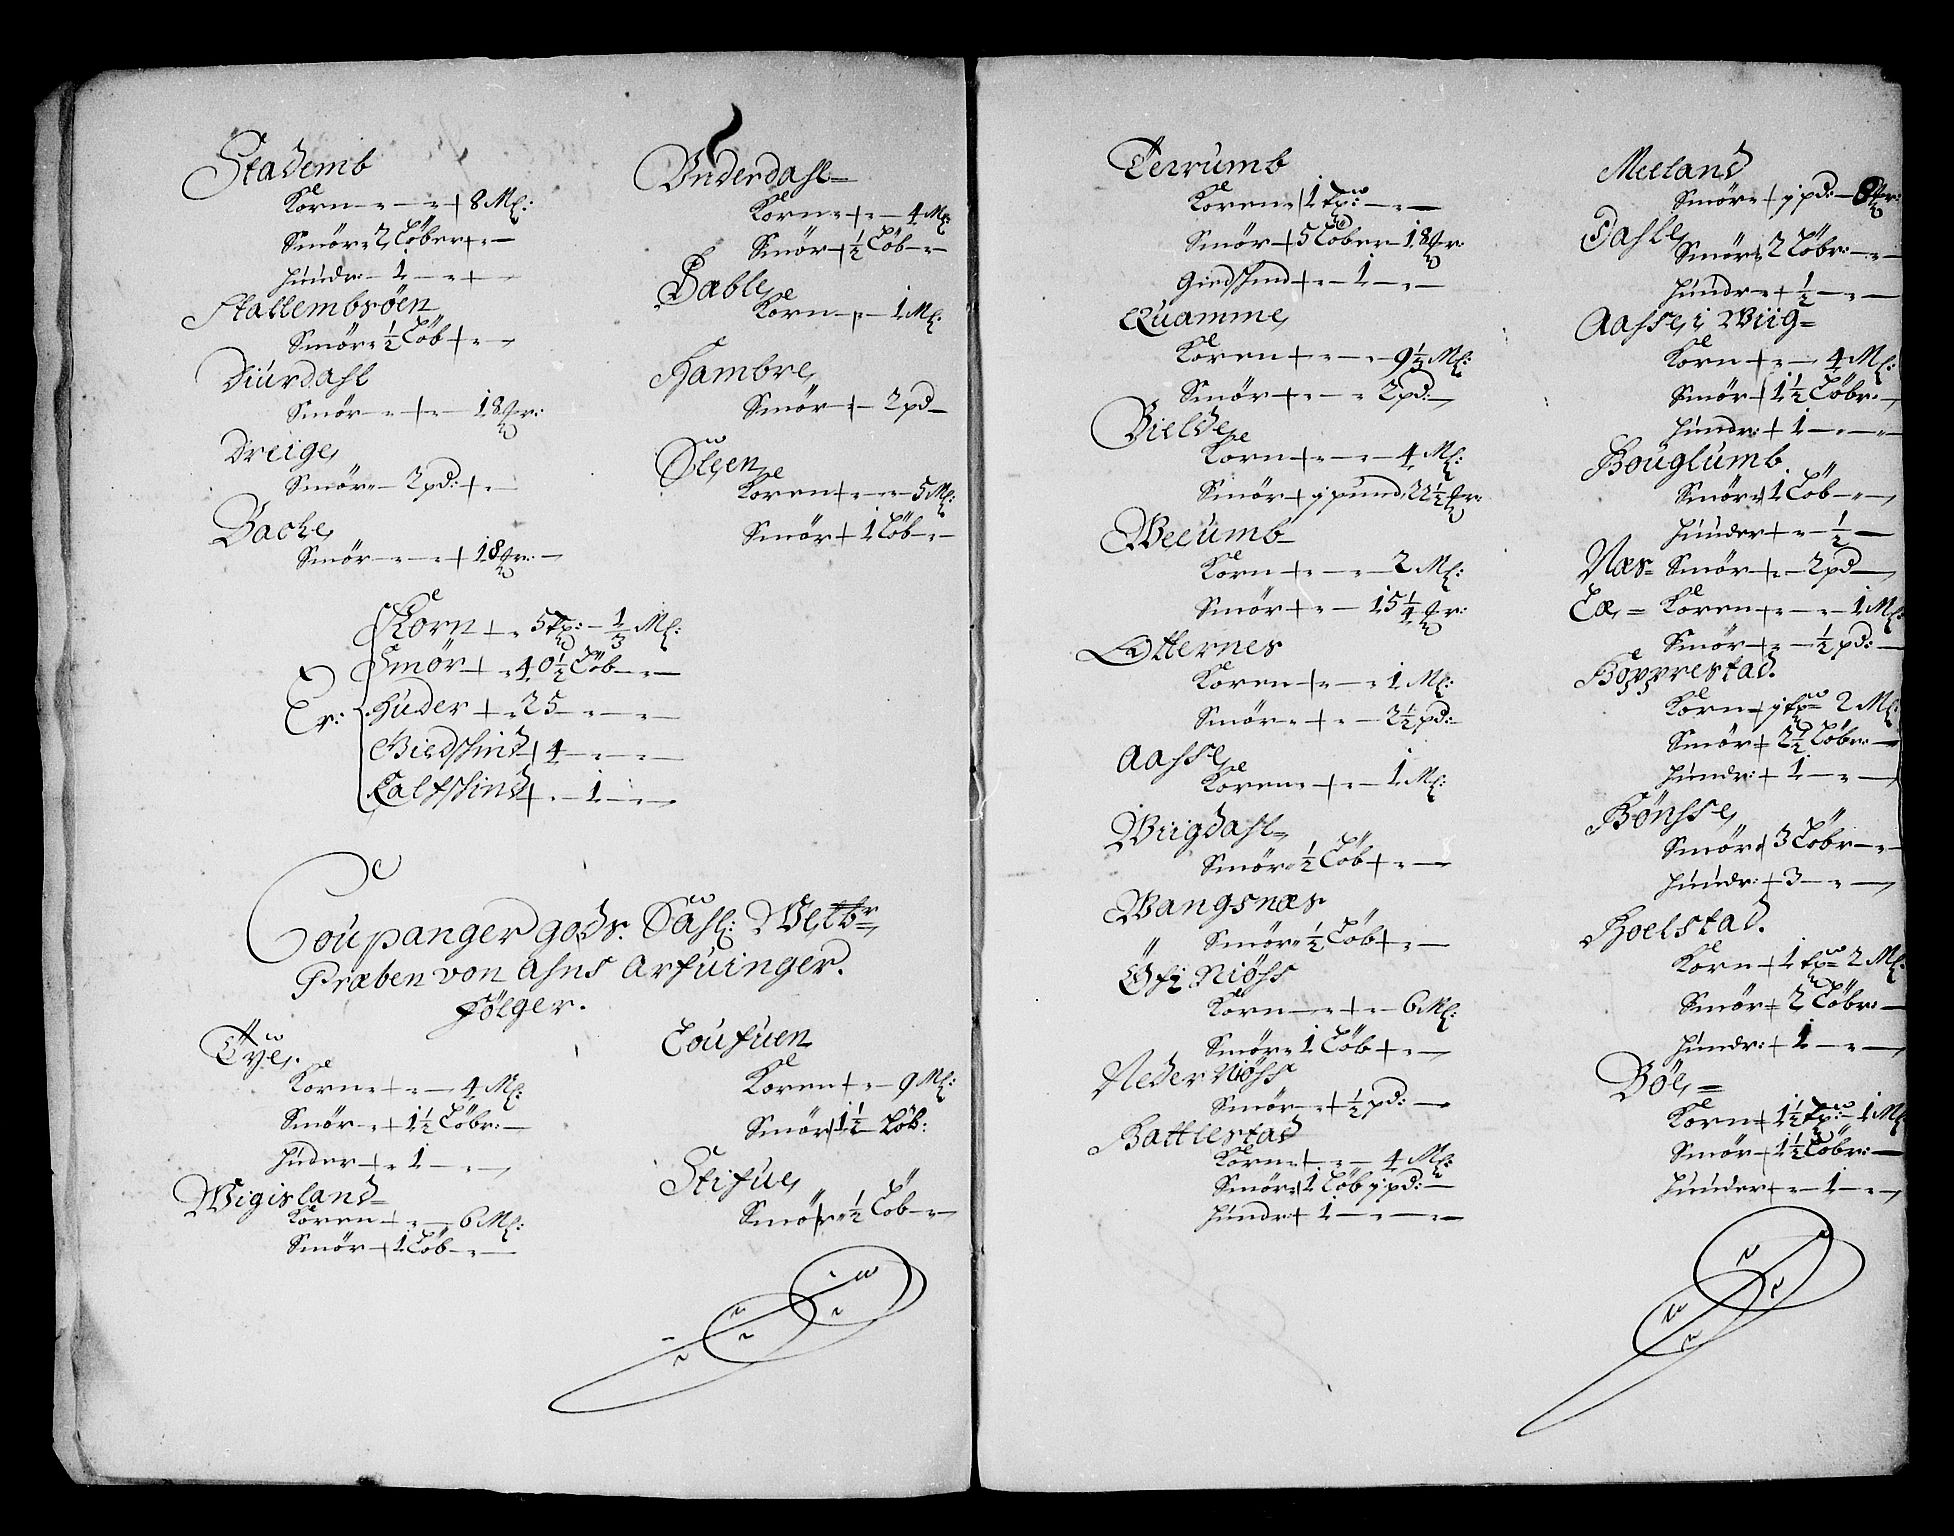 Stademb
Korn - - + 8 Ml:
Smör 2 Löber + -
Huudr: - 1 - +
Stallembsöen
Smör ½ Löb + -
Diurdahl
Smör - + - 18 mr:
Dreige
Smör - 2 pd: + -
Bache
Smör - - + 18 mr: -
Er:
Korn + 5 tp: - 1/3 Ml:
Smör + 40½ Löb -
Huder + 25 -
Giedskind + 4 -
Kalfskind + - 1 -
Underdahl
Korn + - 4 Ml:
Smör + ½ Löb -
Korn - 1 Ml:
Hambre
Smör + - 2 pd -
Ölen
Koren + - 5 Ml:
Smör + 1 Löb -
Coupanger gods. Sahl: Welb:
Præben von Ahns Arfuinger.
Fölger.
Tye
Korn + - 4 Ml:
Smör + 1½ Löbr: -
Huder + 1 -
Wigisland
Koren + - 6 Ml:
Smör + 1 Löb -
Loufuen
Koren + - 9 Ml:
Smör + 1½ Löb:
Stifue
Smör ½ Löb -
Terrumb
Koren + 1 tp: -
Smör + 5 Löber - 18 mr:
Giedskind + - 1 -
Quamme
Koren + - 9⅓ Ml:
Smör + - 2 pd: -
Bielde
Korn + - 4 Ml:
Smör + j pund 22½ mr:
Weeumb
Korn + - 2 Ml:
Smör + - 15¼ mr:
Otternes
Koren + - 1 Ml:
Smör + - 2½ pd:
Aasse
Koren + - 1 Ml:
Wiigdahl
Smör ½ Löb + -
Wangsnæs
Smör ½ Löb + -
Öfr Niöss
Korn - + - 6 Ml:
Smör 1 Löb + -
Neder Niöss
Smör + ½ pd: -
Hattlestad
Korn + - 4 Ml:
Smör + 1 Löb j pd: -
Hundr + 1 -
Meeland
Smör + j pd: - 8 mr:
Dahle
Smör 2 Löbr: -
Hundr + ½ -
Aasse i Wiig
Korn + - 4 Ml:
Smör + 1½ Löbr: -
Hundr: + 1 -
Bouglumb
Smör + 1 Löb -
Hunder + - ½ -
Næs Smör + - 2 pd -
Lœ = Koren + - 1 Ml:
Smör + - ½ pd: -
Hopprestad.
Korn + j tp 2 Ml:
Smör + 2½ Löbr: -
Hundr: + 1 -
Hönsse
Smör + 3 Löbr -
Hundr: + 3 -
Hoelstad.
Korn + 1 tp 2 Ml:
Smör + 2 Löbr: -
Hundr: + 1 -
Böe =
Korn + 1½ tp: - 1 Ml:
Smör + 1½ Löbr: -
Hunder + - 1 -